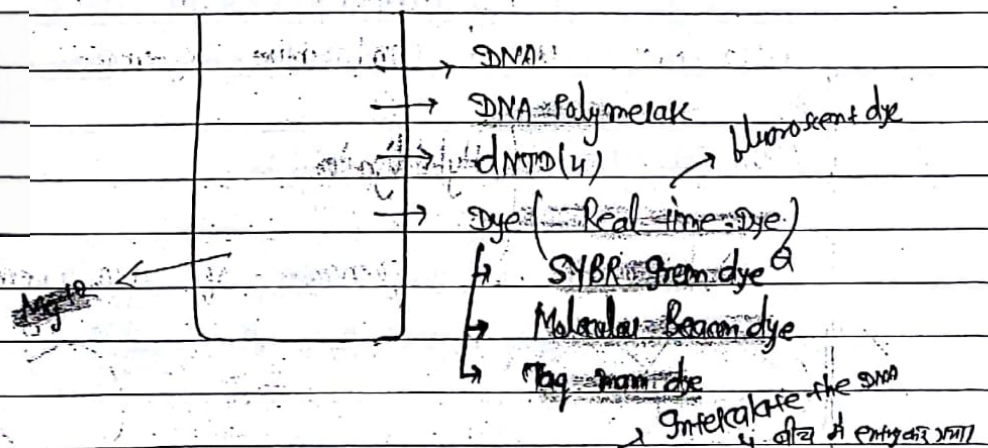 → DNA
→ DNA Polymerase
→ dNTD(4)
→ fluoroscent dye
→ Dye (Real time Dye)
→ SYBR green dye
Mg+2
→ Molecular Beacon dye
→ Taq man dye
→ Intercalate the DNA
बीच में